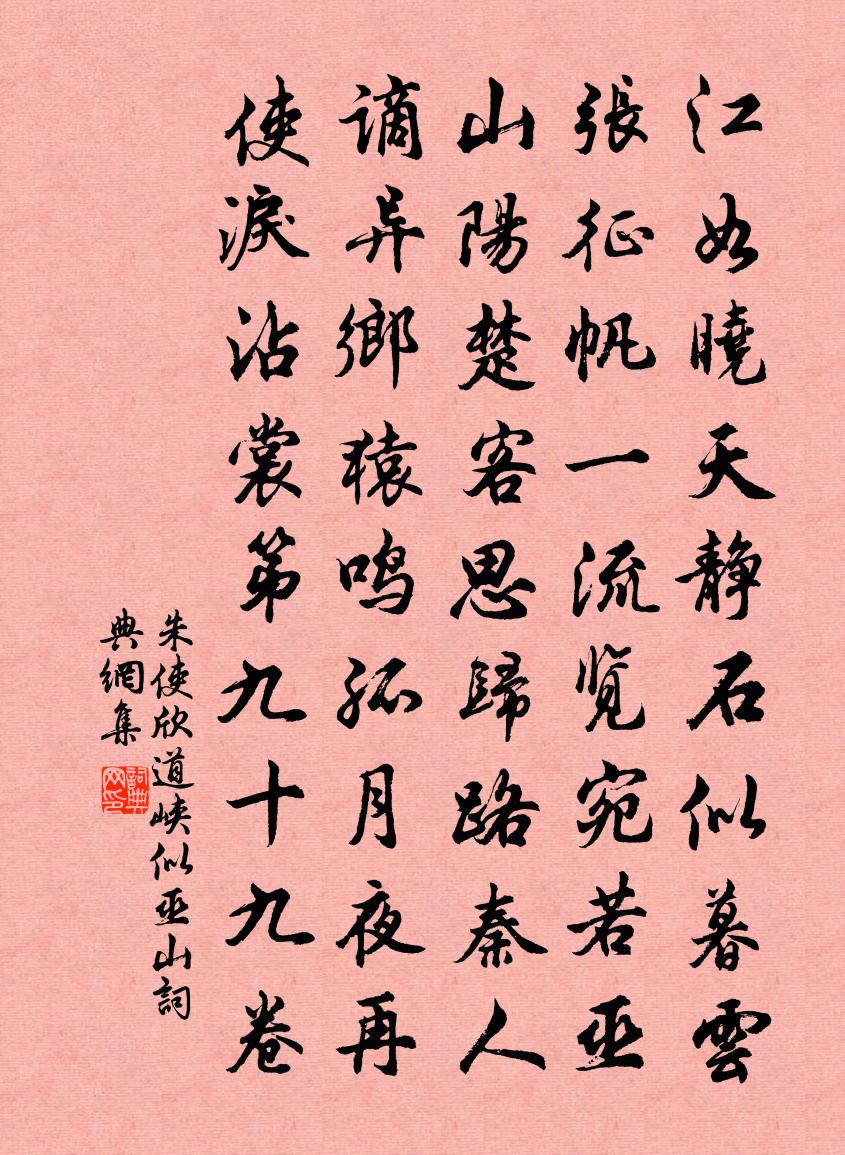 江如曉天静石似暮雲
張征帆一流览宛若巫
山陽楚客思歸路秦人
谪异鄉猿鸣孤月夜再
使淚沾裳第九十九卷
朱使欣道峡似巫山詞
典網集
詞典网印